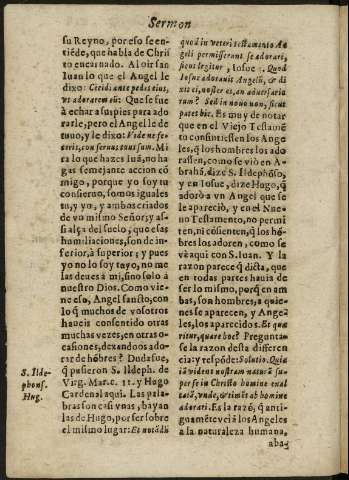 Sermon
su Reyno, por eso se en-
tiẽde, que habla de Chris
to encarnado. Al oir san
Iuan lo que el Angel le
dixo: Cecidi ante pedes eius,
vt adorarem eũ: Que se fue
à echar a sus pies para ado
rarle, pero el Angel le de
tuuo, y le dixo: Vide ne fe-
ceris, conseruus tuus sum. Mi
ra lo que hazes Iuã, no ha
gas semejante accion cõ
migo, porque yo soy tu
consieruo, somos iguales
tu, y yo, y ambos criados
de vn mismo Señor; y as-
si alça del suelo, que esas
humiliaciones, son de in-
ferior, à superior; y pues
yo no lo soy tuyo, no me
las deues à mi, sino solo à
nuestro Dios. Como vie-
ne eso, Angel sancto, con
lo q̃ muchos de vosotros
haueis consentido otras
muchas vezes, en otras o-
casiones, dexandoos ado-
rar de hõbres? Duda fue,
q̃ pusieron S. Ildeph. de
Virg. Mar. c. 11. y Hugo
Cardenal aqui. Las pala-
bras son casi vnas, bayan
las de Hugo, por ser sobre
el mismo lugar: Et notãdũ
S. Ilde-
phons.
Hug.
quod in veteri testamento An
geli permisserunt se adorari,
sicut legitur, Iosue. Quod
Iosue adorauit Angelũ, & di
xit ei, noster es, an aduersario
rum? Sed in nouo non, sicut
patet hic. Es muy de notar
que en el Viejo Testamẽ
to consintiessen los Ange
les, q̃ los hombres los ado
rassen, como se viò en A-
brahã, dize S. Ildephõso,
y en Iosue, dize Hugo, q̃
adorò a vn Angel que se
le apareciò, y en el Nue-
uo Testamento, no permi
ten, ni cõsienten, q̃ los hõ-
bres los adoren, como se
vè aqui con S. Iuan. Y la
razon parece q̃ dicta, que
en todas partes hauia de
ser lo mismo, porq̃ en am
bas, son hombres, a quie-
nes se aparecen, y Ange-
les, los aparecidos. Et quæ
ritur, quare hoc? Pregunta
se la razon desta differen
cia: y respõde: Solutio. Quia
iã vident nostram naturã su-
per se in Christo homine exal
tatã, vnde, & timẽt ab homine
adorari. Es la razõ, q̃ anti-
guamẽte veià los Angeles
a la naturaleza humana,
aba-